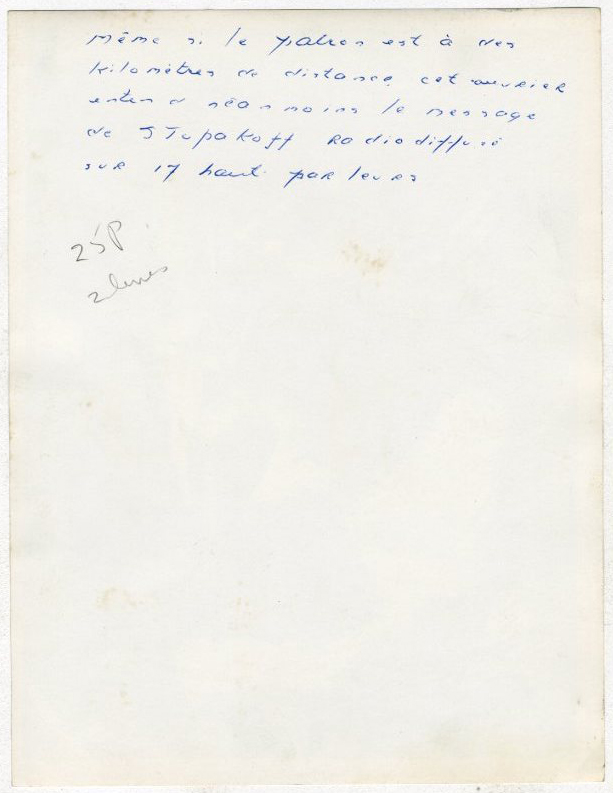 Même si le patron est à des
kilomètres de distance, cet ouvrier
entend néanmoins le message
de STUPAKOFF Radiodiffusé
sur 17 haut parleurs
25P
2